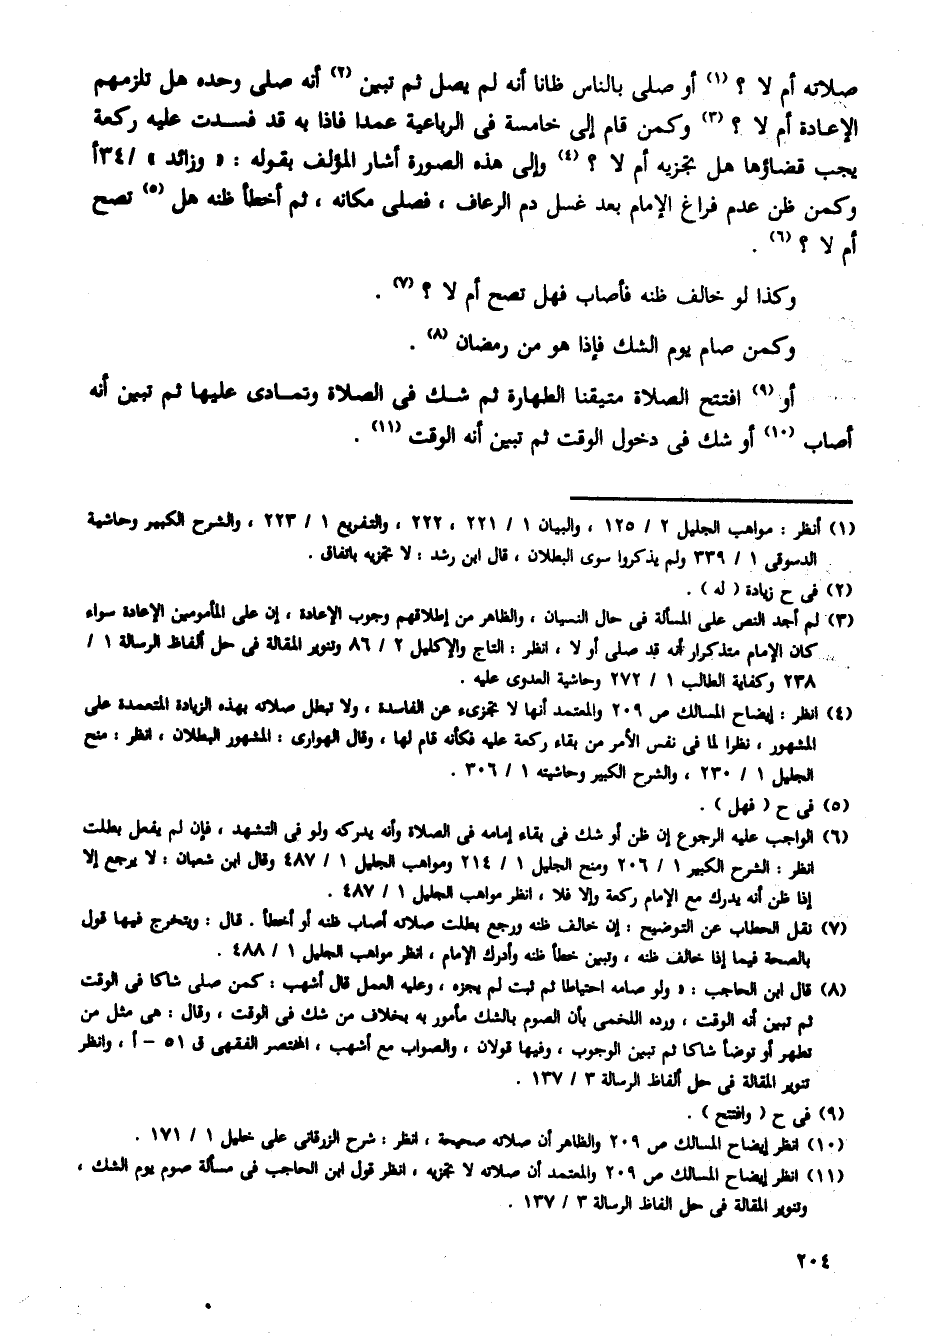 صلاته أم لا ؟ (١) أو صلى بالناس ظانا أنه لم يصل ثم تبين (٢) أنه صلى وحده هل تلزمهم
الإعادة أم لا ؟ (٣) وكمن قام إلى خامسة فى الرباعية عمدا فاذا به قد فسدت عليه ركعة
يجب قضاؤها هل تجزيه أم لا ؟ (٤) وإلى هذه الصورة أشار المؤلف بقوله : « وزائد » /٣٤أ
وكمن ظن عدم فراغ الإمام بعد غسل دم الرعاف ، فصلى مكانه ، ثم أخطأ ظنه هل (٥) تصح
أم لا ؟ (٦) .
وكذا لو خالف ظنه فأصاب فهل تصح أم لا ؟ (٧) .
وكمن صام يوم الشك فإذا هو من رمضان (٨) .
أو (٩) افتتح الصلاة متيقنا الطهارة ثم شك فى الصلاة وتمادى عليها ثم تبين أنه
أصاب (١٠) أو شك فى دخول الوقت ثم تبين أنه الوقت (١١) .
(١) أنظر : مواهب الجليل ٢ / ١٢٥ ، والبيان ١ / ٢٢١ ، ٢٢٢ ، والتفريع ١ / ٢٢٣ ، والشرح الكبير وحاشية
الدسوقى ١ / ٣٣٩ ولم يذكروا سوى البطلان ، قال ابن رشد : لا تجزيه باتفاق .
(٢) فى ح زيادة ( له ) .
(٣) لم أجد النص على المسألة فى حال النسيان ، والظاهر من إطلاقهم وجوب الإعادة ، إن على المأمومين الإعادة سواء
كان الإمام متذكرار أنه قد صلى أو لا ، انظر : التاج والإكليل ٢ / ٨٦ وتنوير المقالة فى حل ألفاظ الرسالة ١ /
٢٣٨ وكفاية الطالب ١ / ٢٧٢ وحاشية العدوى عليه .
(٤) انظر : إيضاح المسالك ص ٢٠٩ والمعتمد أنها لا تجزىء عن الفاسدة ، ولا تبطل صلاته بهذه الزيادة المتعمدة على
المشهور ، نظرا لما فى نفس الأمر من بقاء ركعة عليه فكأنه قام لها ، وقال الهوارى : المشهور البطلان ، انظر : منح
الجليل ١ / ٢٣٠ ، والشرح الكبير وحاشيته ١ / ٣٠٦ .
(٥) فى ح ( فهل ) .
(٦) الواجب عليه الرجوع إن ظن أو شك فى بقاء إمامه فى الصلاة وأنه يدركه ولو فى التشهد ، فإن لم يفعل بطلت
انظر : الشرح الكبير ١ / ٢٠٦ ومنح الجليل ١ / ٢١٤ ومواهب الجليل ١ / ٤٨٧ وقال ابن شعبان : لا يرجع إلا
إذا ظن أنه يدرك مع الإمام ركعة وإلا فلا ، انظر مواهب الجليل ١ / ٤٨٧ .
(٧) نقل الحطاب عن التوضيح : إن خالف ظنه ورجع بطلت صلاته أصاب ظنه أو أخطأ . قال : ويتخرج فيها قول
بالصحة فيما إذا خالف ظنه ، وتبين خطأ ظنه وأدرك الإمام ، انظر مواهب الجليل ١ / ٤٨٨ .
(٨) قال ابن الحاجب : « ولو صامه احتياطا ثم ثبت لم يجزه ، وعليه العمل قال أشهب : كمن صلى شاكا فى الوقت
ثم تبين أنه الوقت ، ورده اللخمى بأن الصوم بالشك مأمور به بخلاف من شك فى الوقت ، وقال : هى مثل من
تطهر أو توضأ شاكا ثم تبين الوجوب ، وفيها قولان ، والصواب مع أشهب ، المختصر الفقهى ق ٥١ - أ ، وانظر
تنوير المقالة فى حل ألفاظ الرسالة ٣ / ١٣٧ .
(٩) فى ح ( وافتتح ) .
(١٠) انظر إيضاح المسالك ص ٢٠٩ والظاهر أن صلاته صحيحة ، انظر : شرح الزرقانى على خليل ١ / ١٧١ .
(١١) انظر إيضاح المسالك ص ٢٠٩ والمعتمد أن صلاته لا تجزيه ، انظر قول ابن الحاجب فى مسألة صوم يوم الشك ،
وتنوير المقالة فى حل الفاظ الرسالة ٣ / ١٣٧ .
٢٠٤